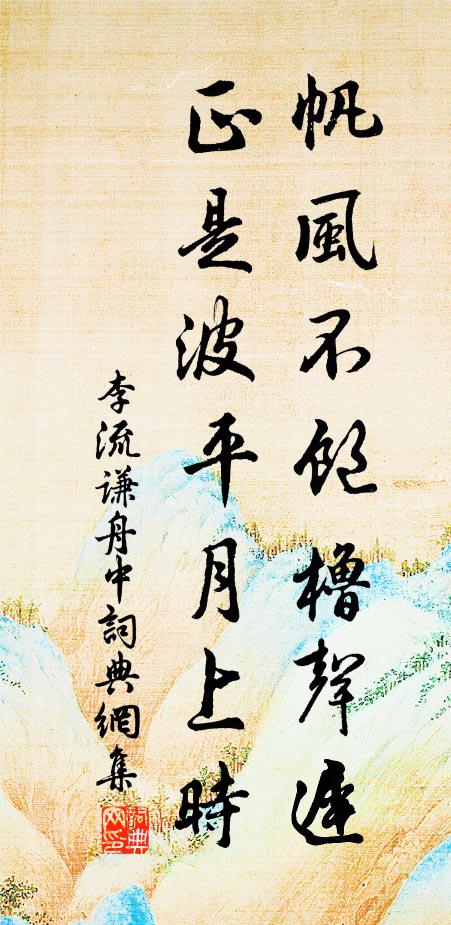 帆風不飽櫓聲遲
正是波平月上時
李流謙舟中詞典網集
詞典網印